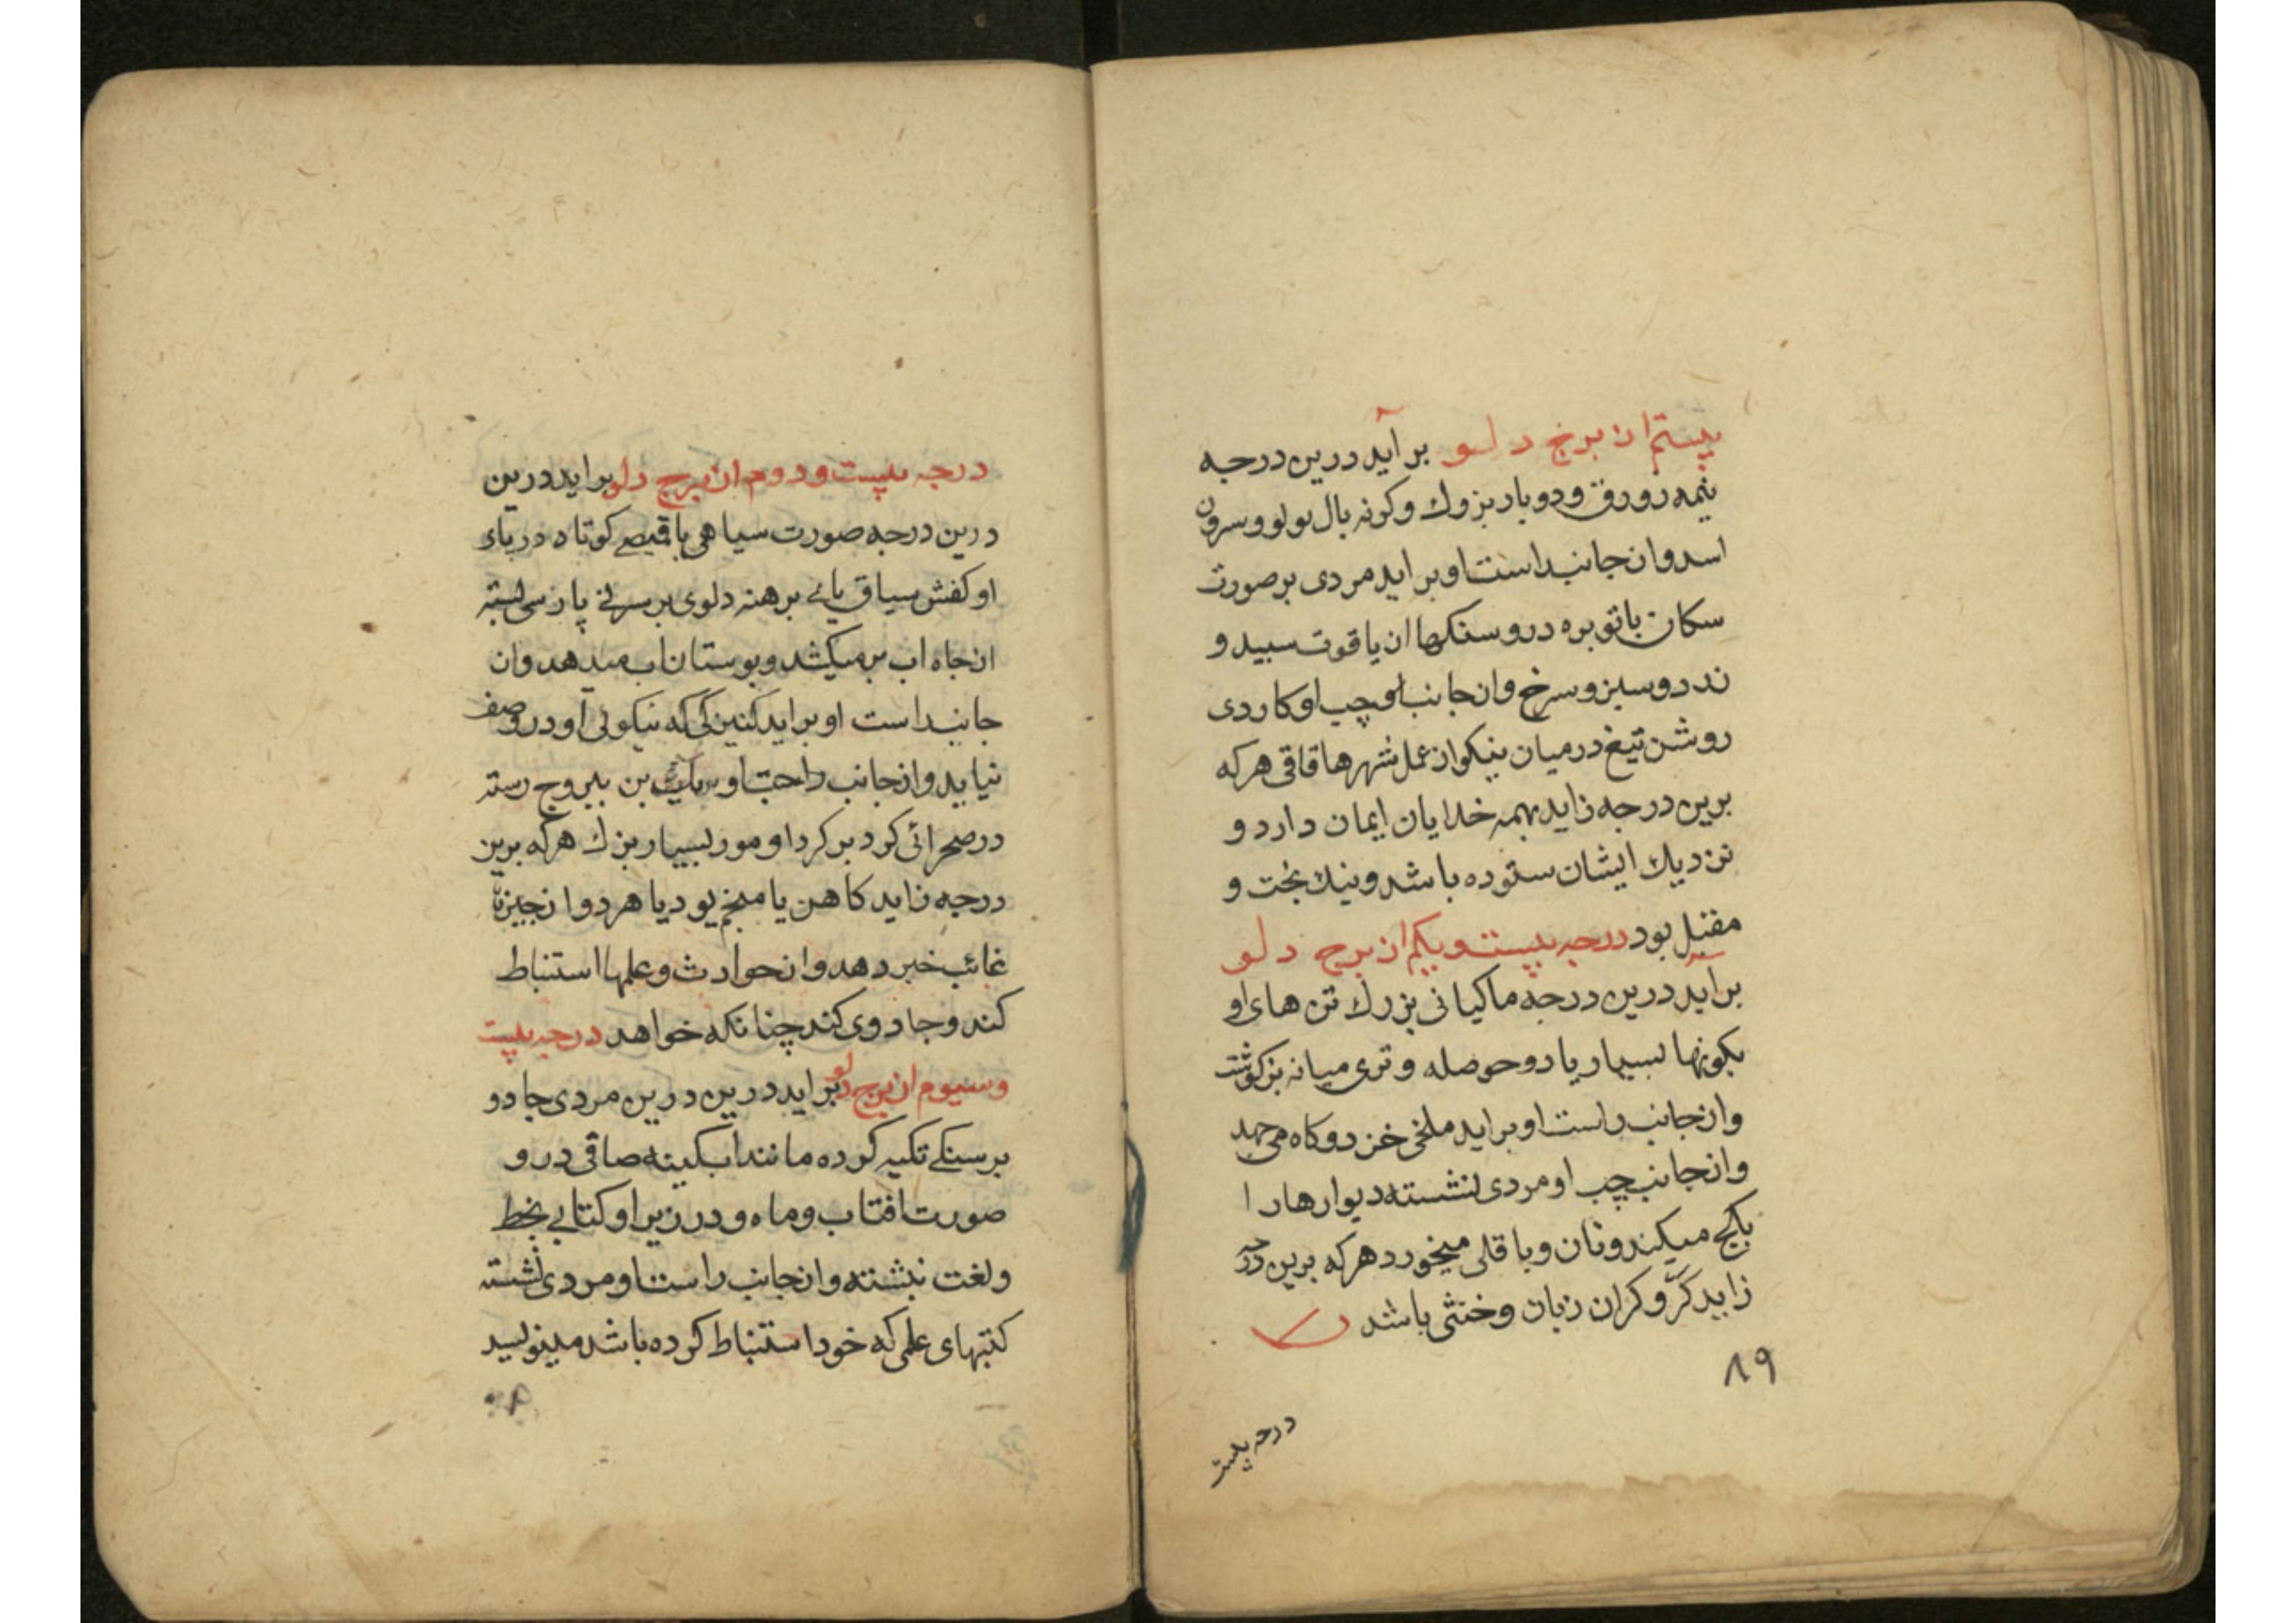 بیستم از برج دلو بر آید درین درجه
نیمه زورق و دو بار بزرك و کونه بال لولو و سرون
اسد و از جانب است او بر اید مردی بر صورت
سکان با توبره درو سنکها از یاقوت سبید و
زرد و سبز و سرخ و از جانب او چپ او کاردی
روشن تیغ در میان نیکو از عمل شهرها قاقی هرکه
برین درجه زاید بهمه خدایان ایمان دارد و
نزدیك ایشان ستوده باشد و نیك بخت و
مقبل بود درجه بیست و یکم از برج دلو
براید درین درجه ماکیانی بزرك تن های او
بکونها بسیار یا دو حوصله و تری میانه بزکوشت
و از جانب راست او براید ملخی خرد و کاه می جهد
و از جانب چپ او مردی نشسته دیوارها را
بکچ میکند و نان و باقلی میخورد هرکه برین درجه
زاید کر و کران زبان و خنثی باشد
۸۹
درجه بیست
درجه بیست و دوم از برج دلو براید درین
درین درجه صورت سیاهی با قبصی کوتاه در پای
او کفش سیاق پای برهنه دلوی بر سر نی پارسی بسته
از جاه اب بر میکشد و بوستان اب میدهد و از
جانب راست او براید کنیزکی که نیکوئی او در وصف
نیاید و از جانب راحت او بر یك بن بیروج رسته
در صحرائی کرد بر کرد او مور بسیار بزرك هرکه برین
درجه زاید کاهن یا منجم بود یا هر دو از چیزها
غائب خبر دهد و از حوادث و علمها استنباط
کند و جادوی کند چنانکه خواهد درجه بیست
و سیوم از برج دلو براید درین درین مردی جادو
بر سنکی تکیه کرده مانند ابکینه صافی درو
صورت افتاب و ماه و در زیر او کتابی بخط
و لغت نبشته و از جانب راست او مردی نشسته
کتبهای علمی که خود استنباط کرده باشد مینویسد